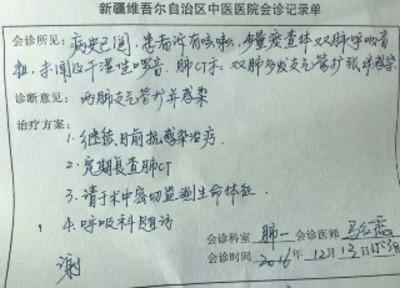 新疆维吾尔自治区中医医院会诊记录单
会诊所见：病史已阅，患者诉有咳嗽，少量痰查体双肺呼吸音
粗，未闻及干湿啰音.肺CT示：双肺多发支气管扩张伴感染.
诊断意见：两肺支气管扩张并感染
治疗方案：
1.继续目前抗感染治疗.
2.定期复查肺CT
3.请于术中密切监测生命体征.
4.呼吸科随访
谢
会诊科室 肺一 会诊医师 马红霞
会诊时间 2016年12月13日